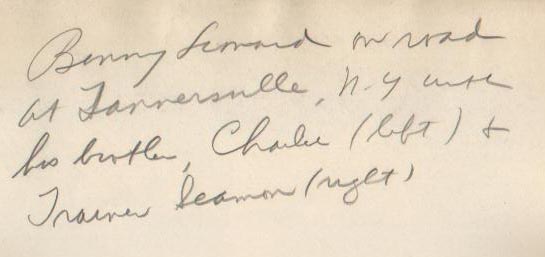 Benny Leonard on road
at Tannersville, N.Y with
his brother, Charlie (left) &
Trainer Seamon (right)